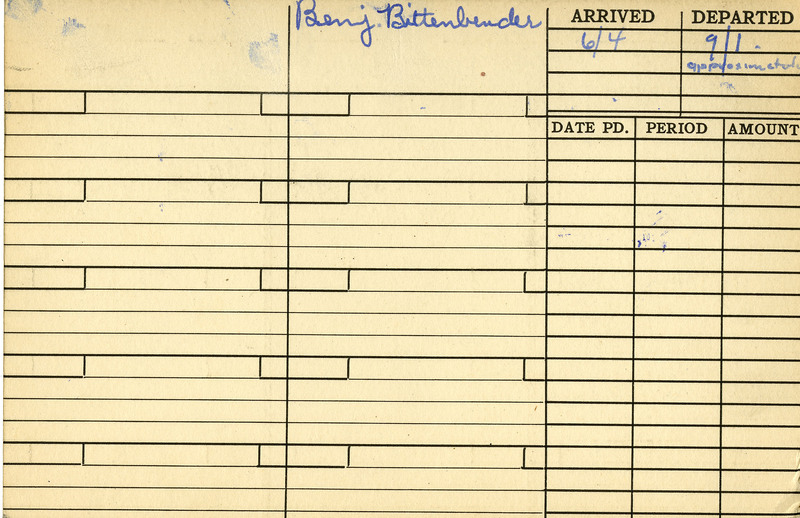 Benj. Bittenbender
ARRIVED DEPARTED
6/4 9/1.
approximately
DATE PD. PERIOD AMOUNT